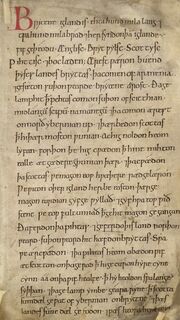 Brittene igland is ehta hund mila lang.
⁊ twa hund brad. ⁊ her sind on þis iglande
fif geþeode. englisc. ⁊ brittisc. ⁊ wilsc. ⁊ scyttisc.
⁊ pyhtisc. ⁊ boc leden. Erest weron bugend
þises landes brittes. þa coman of armenia.
⁊ gesætan suðewearde bryttene ærost. Þa ge
lamp hit þæt pyhtas coman suþan of scithian. mid
langum scipum na manegum. ⁊ þa coman ærost
on norþ ybernian up. ⁊ þær bædon scottas
þæt hi ðer moston wunian. ac hi noldan heom
lyfan. forðan hi cwædon þæt hi ne mihton
ealle ætgædere gewunian þær. ⁊ þa cwædon
þa scottas. we eow magon þeah hwaðere ræd gelæron.
We witon oþer egland her be easton. þer ge
magon eardian gif ge willað. ⁊ gif hwa eow wið
stent. we eow fultumiað. þæt ge hit magon gegangan.
Ða ferdon þa pihtas. ⁊ geferdon þis land norþan
weard. ⁊ suþanweard hit hefdon brittas. swa
we ær cwedon. ⁊ þa pyhtas heom abædon wif
æt scottum. on þa gerad þæt hi gecuron heora kyne
cyn aa on þa wif healfa. þæt hi heoldon swa lange
syððan. ⁊ þa gelamp hit imbe geara rina. þæt scotta
sum dæl gewat of ybernian on brittene. ⁊ þes
landes sum dæl geeodon.